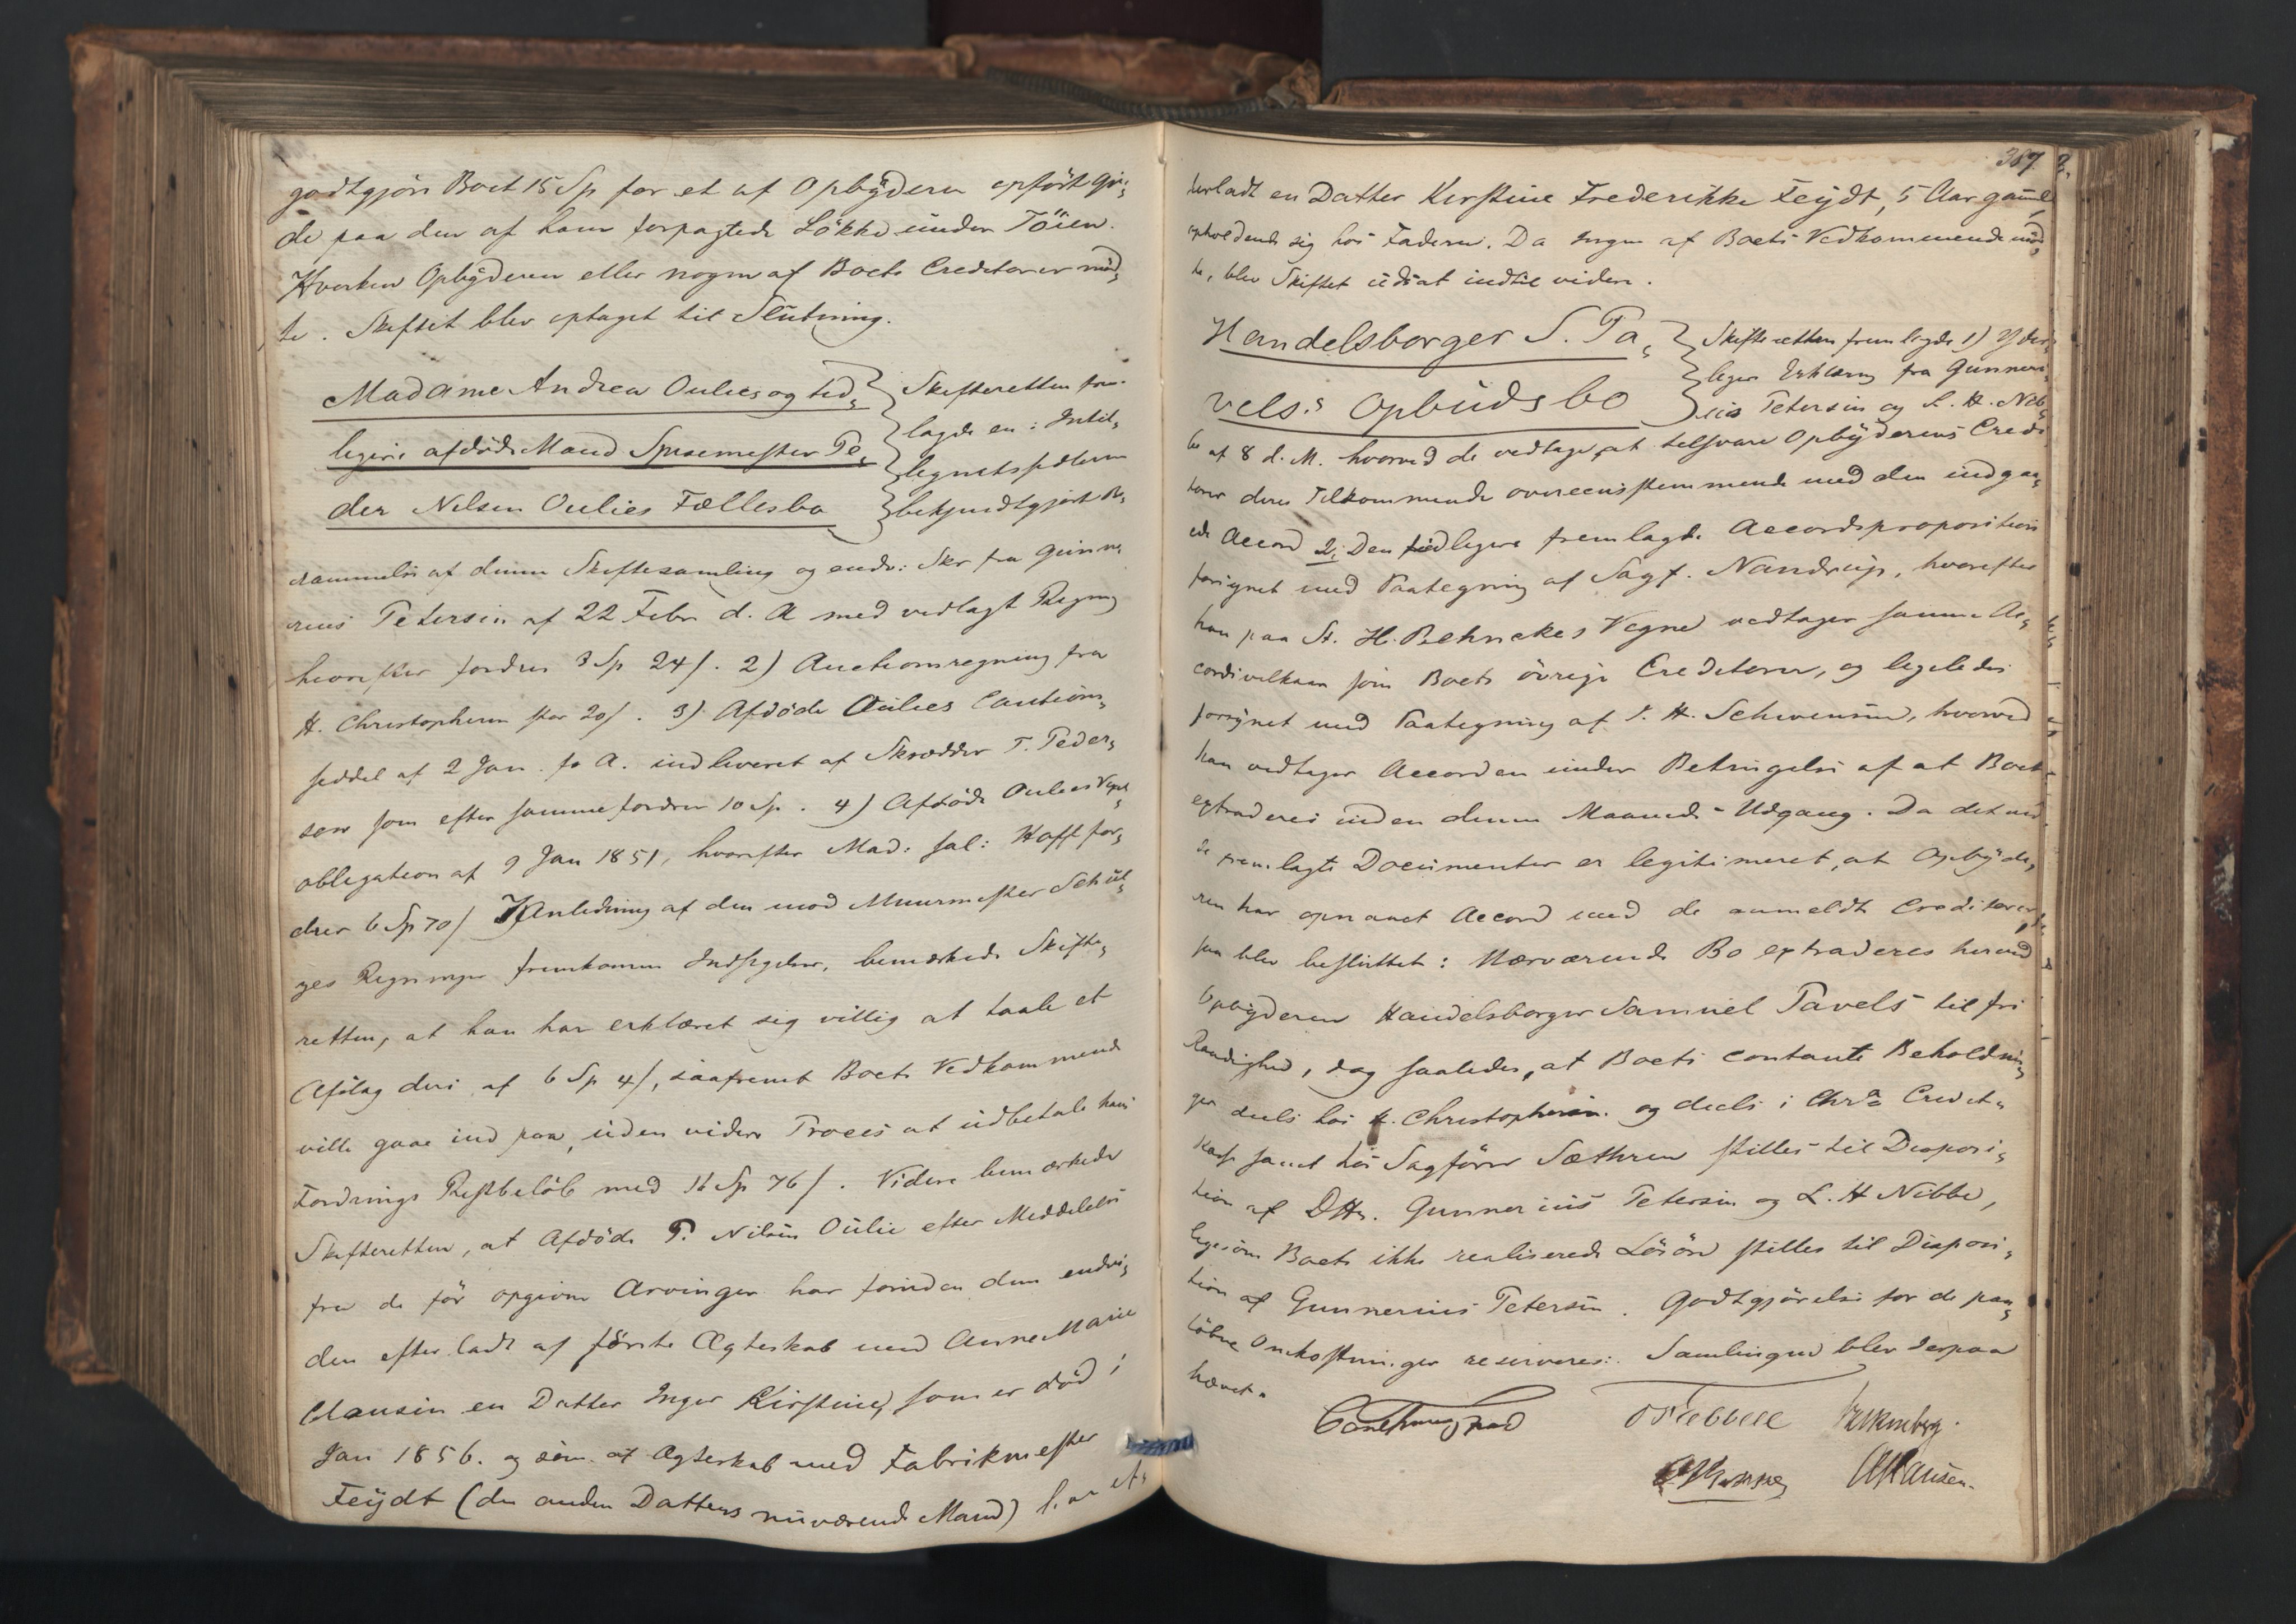 godtgjöre Boet 15 Sp for et af Opbyderen opfört Gjer¬
de paa den af ham forpagtede Lökke under Töien.
Hverken Opbyderen eller nogen af Boets Creditorer möd¬
te. Skiftet blev optaget til Slutning.
Madame Andrea Oulies og tid¬
ligere afdöde Mand Spisemester Pe¬
der Nilsen Oulies Fællesbo
Skifteretten frem¬
lagde en: Intel¬
legentssedlerne
bekjendtgjort Be¬
rammelse af denne Skiftesamling og endv: Skr fra Gunne¬
rius Petersen af 22 Febr d. A med vedlagt Regning
hvorefter fordres 3 Sp 24 /. 2) Auctionsregning fra
H. Christophersen stor 20 /. 3) Afdöde Oulies Cautions¬
seddel af 2 Jan. f. A. indleveret af Skrædder T. Peder¬
sen som efter samme fordrer 10 Sp. 4) Afdöde Oulies
obligation af 9 Jan 1851, hvorefter Mad: sal: Hoff for¬
drer 6 Sp 70 / I Anledning af den mod Muurmester Schül¬
ges Regninger fremkomne Indsigelser, bemærkede Skifte¬
retten, at han har erklæret sig villig at taale et
Afslag deri af 6 Sp 4 /, saafremt Boets Vedkommende
ville gaae ind paa, uden videre Proces at udbetale hans
Fordrings Restbelöb med 16 Sp 76 /. Videre bemærkede
Skifteretten, at Afdöde P. Nilsen Oulie efter Meddelelse
fra de för opgivne Arvinger har foruden dem endvi¬
den efterladt af förste Ægteskab med Anne Marie
Clausen en Datter Inger Kirstine, som er död i
Jan 1856. og som af Ægteskab med Fabrikmester
Feydt (den anden Datters nuværende Mand) har ef¬
387
terladt en Datter Kirstine Frederikke Feydt, 5 Aar gammel,
opholdende sig hos Faderen. Da Ingen af Boets Vedkommende möd¬
te, blev Skiftet udsat indtil videre.
Handelsborger S. Pa¬
vels's Opbudsbo
Skifteretten fremlagde 1) Yder¬
ligere Erklæring fra Gunner¬
ius Petersen og L. H. Nib¬
be af 8 d. M. hvorved de vedtage, at tilsvare Opbyderens Credi
torer deres Tilkommende overeensstemmende med den indgaa¬
ede Accord 2, Den tidligere fremlagte Accordsproposition
forsynet med Paategning af Sagf. Nandrup, hvorefter
han paa St. H. Behnckes Vegne vedtager samme Ac¬
cordsvilkaar som Boets övrige Creditorer, og ligeledes
forsynet med Paategning af J. H. Schwensen, hvorved
han vedtager Accorden under Betingelse af at Boet
extraderes inden denne Maaneds Udgang. Da det ved
de fremlagte Documenter er legitimeret, at Opbyde¬
ren har opnaaet Accord med de anmeldte Creditorer,
saa blev besluttet: Nærværende Bo extraderes herved
Opbyderen Handelsborger Samuel Pavels til fri
Raadighed, dog saaledes, at Boets contante Beholdnin¬
ger deels hos H. Christophersen og deels i Chra Credit¬
kasse samt hos Sagförer Sæthren stilles til Disposi¬
tion af DHr. Gunnerius Petersen og L. H Nibbe,
ligesom Boets ikke realiserede Lösöre stilles til Disposi¬
tion af Gunnerius Petersen. Godtgjörelse for de paa¬
löbne Omkostninger reserveres. Samlingen blev derpaa
hævet.